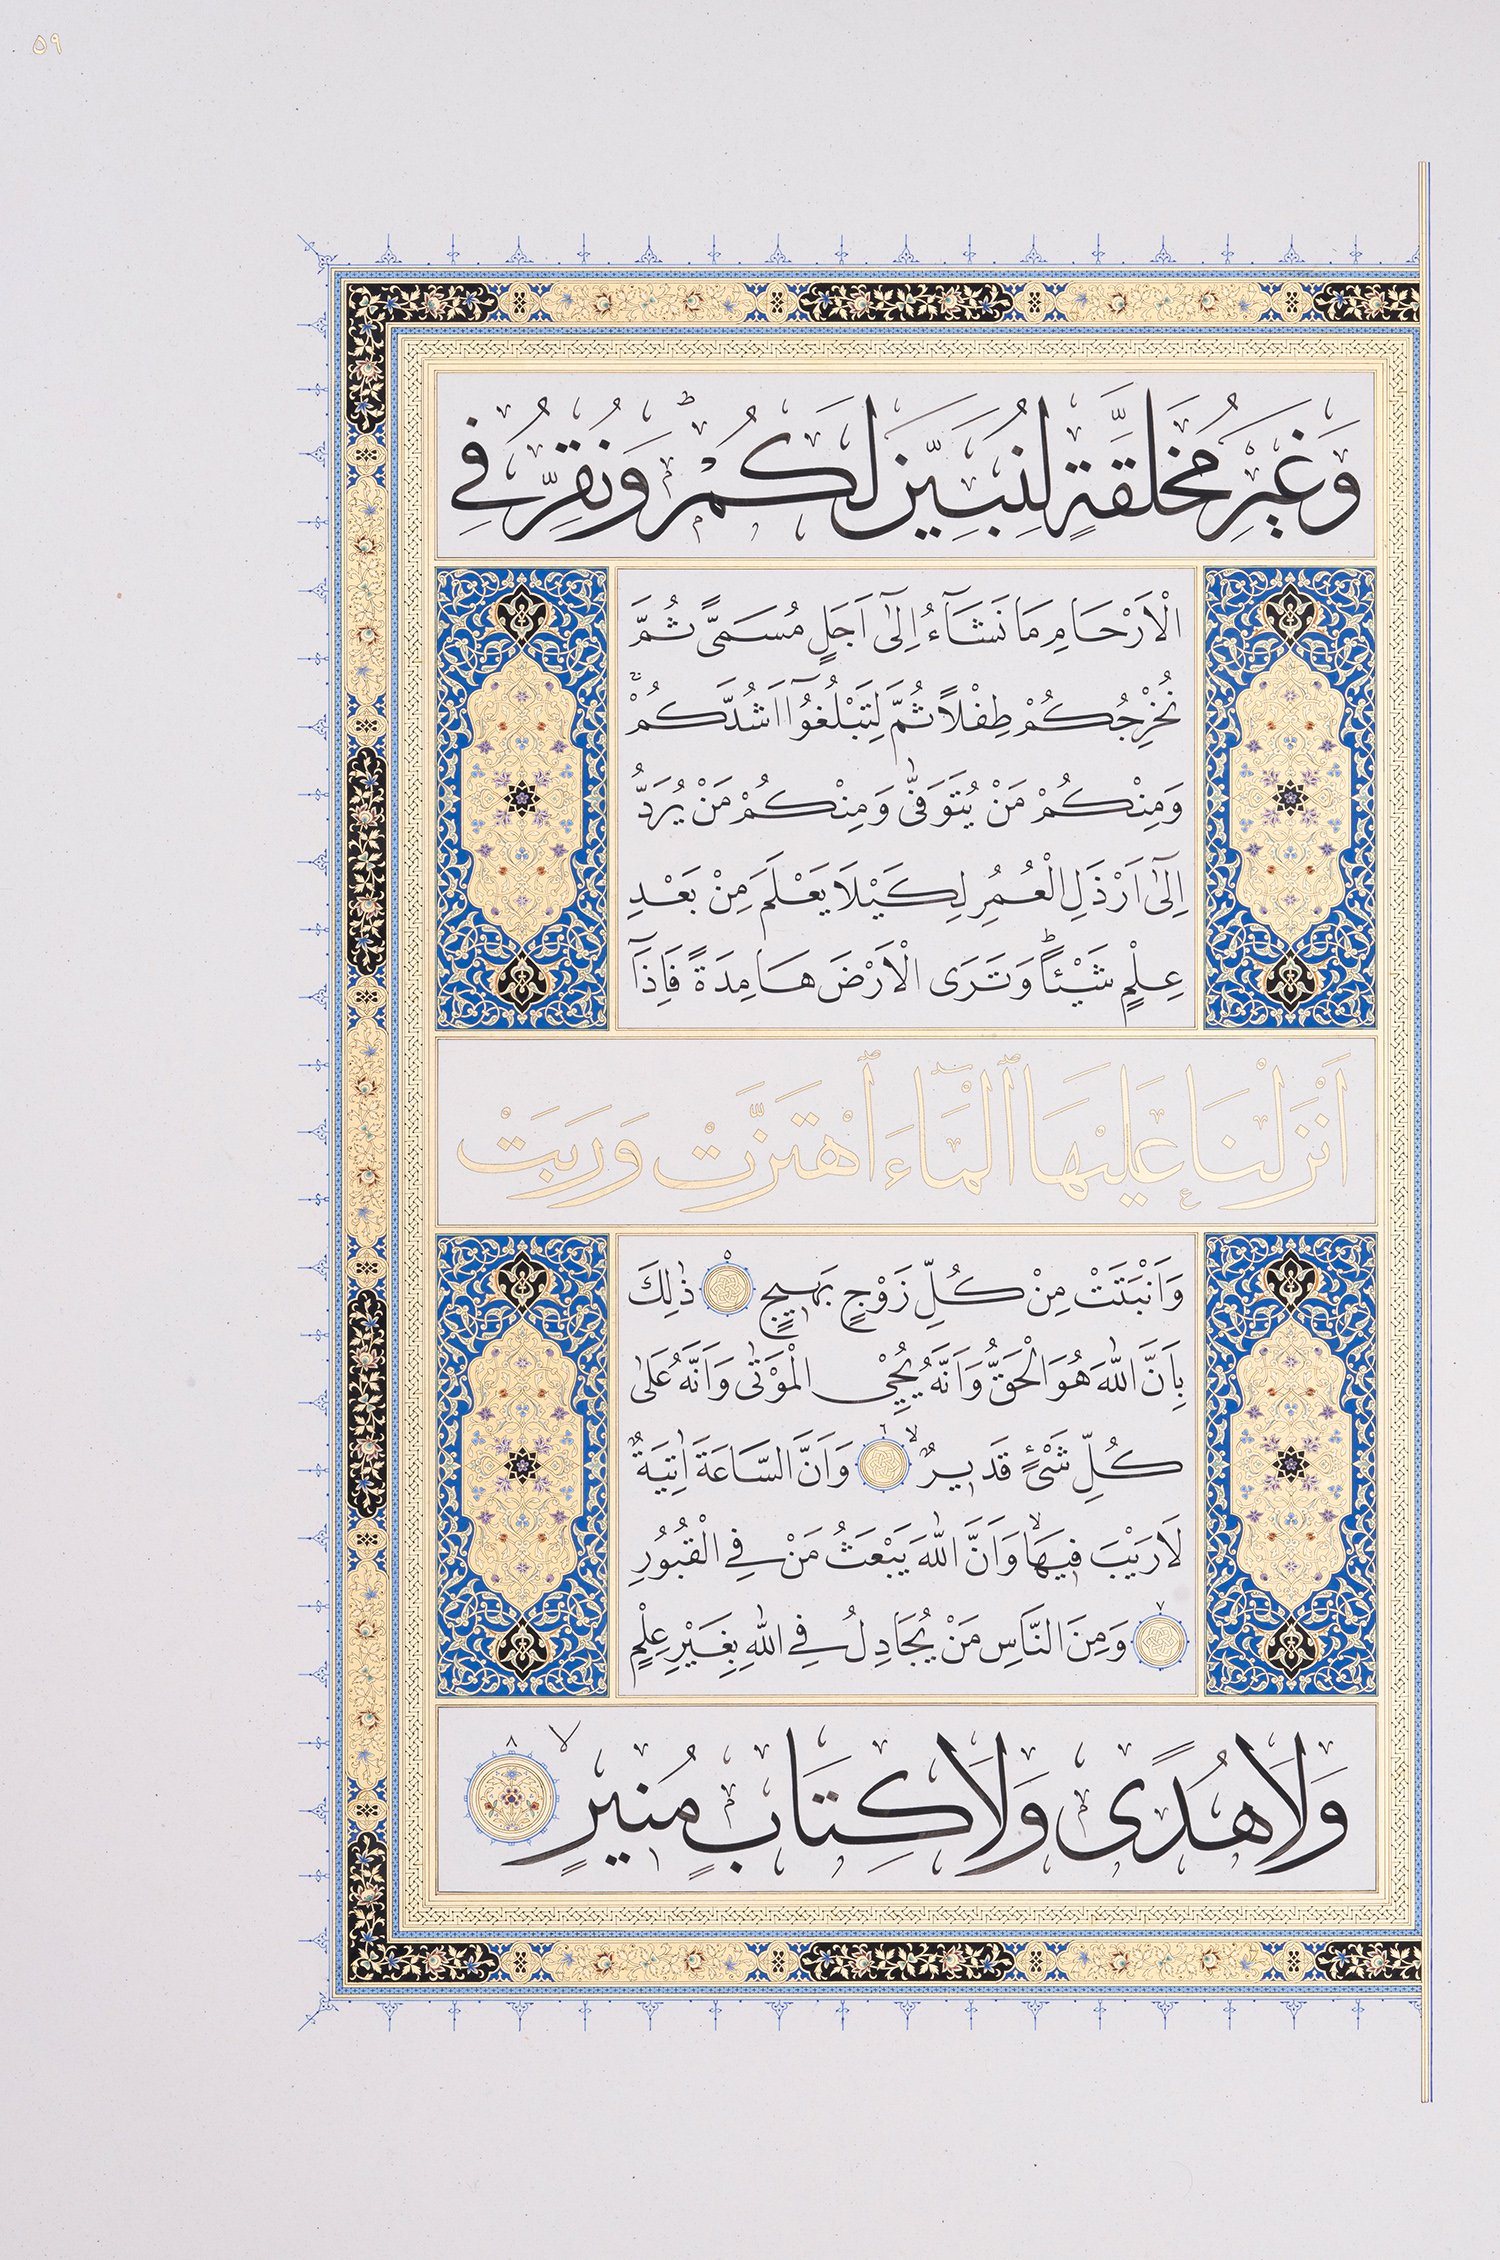 ٥٩
وَغَيْرِ مُخَلَّقَةٍ لِنُبَيِّنَ لَكُمْ ط وَنُقِرُّ فِي
الْاَرْحَامِ مَا نَشَآءُ اِلٰٓى اَجَلٍ مُسَمًّى ثُمَّ
نُخْرِجُكُمْ طِفْلًا ثُمَّ لِتَبْلُغُوٓا اَشُدَّكُمْ
وَمِنْكُمْ مَنْ يُتَوَفّٰى وَمِنْكُمْ مَنْ يُرَدُّ
اِلٰٓى اَرْذَلِ الْعُمُرِ لِكَيْلَا يَعْلَمَ مِنْ بَعْدِ
عِلْمٍ شَيْـًٔا ط وَتَرَى الْاَرْضَ هَامِدَةً فَاِذَآ
اَنْزَلْنَا عَلَيْهَا ٱلْمَآءَ ٱهْتَزَّتْ وَرَبَتْ
وَاَنْبَتَتْ مِنْ كُلِّ زَوْجٍ بَهِيجٍ ٥ ذٰلِكَ
بِاَنَّ اللّٰهَ هُوَ الْحَقُّ وَاَنَّهُ يُحْيِ الْمَوْتٰى وَاَنَّهُ عَلٰى
كُلِّ شَيْءٍ قَدِيرٌ لا ٦ وَاَنَّ السَّاعَةَ اٰتِيَةٌ
لَا رَيْبَ فِيهَا لا وَاَنَّ اللّٰهَ يَبْعَثُ مَنْ فِي الْقُبُورِ
٧ وَمِنَ النَّاسِ مَنْ يُجَادِلُ فِي اللّٰهِ بِغَيْرِ عِلْمٍ
وَلَا هُدًى وَلَا كِتَابٍ مُنِيرٍ لا ٨